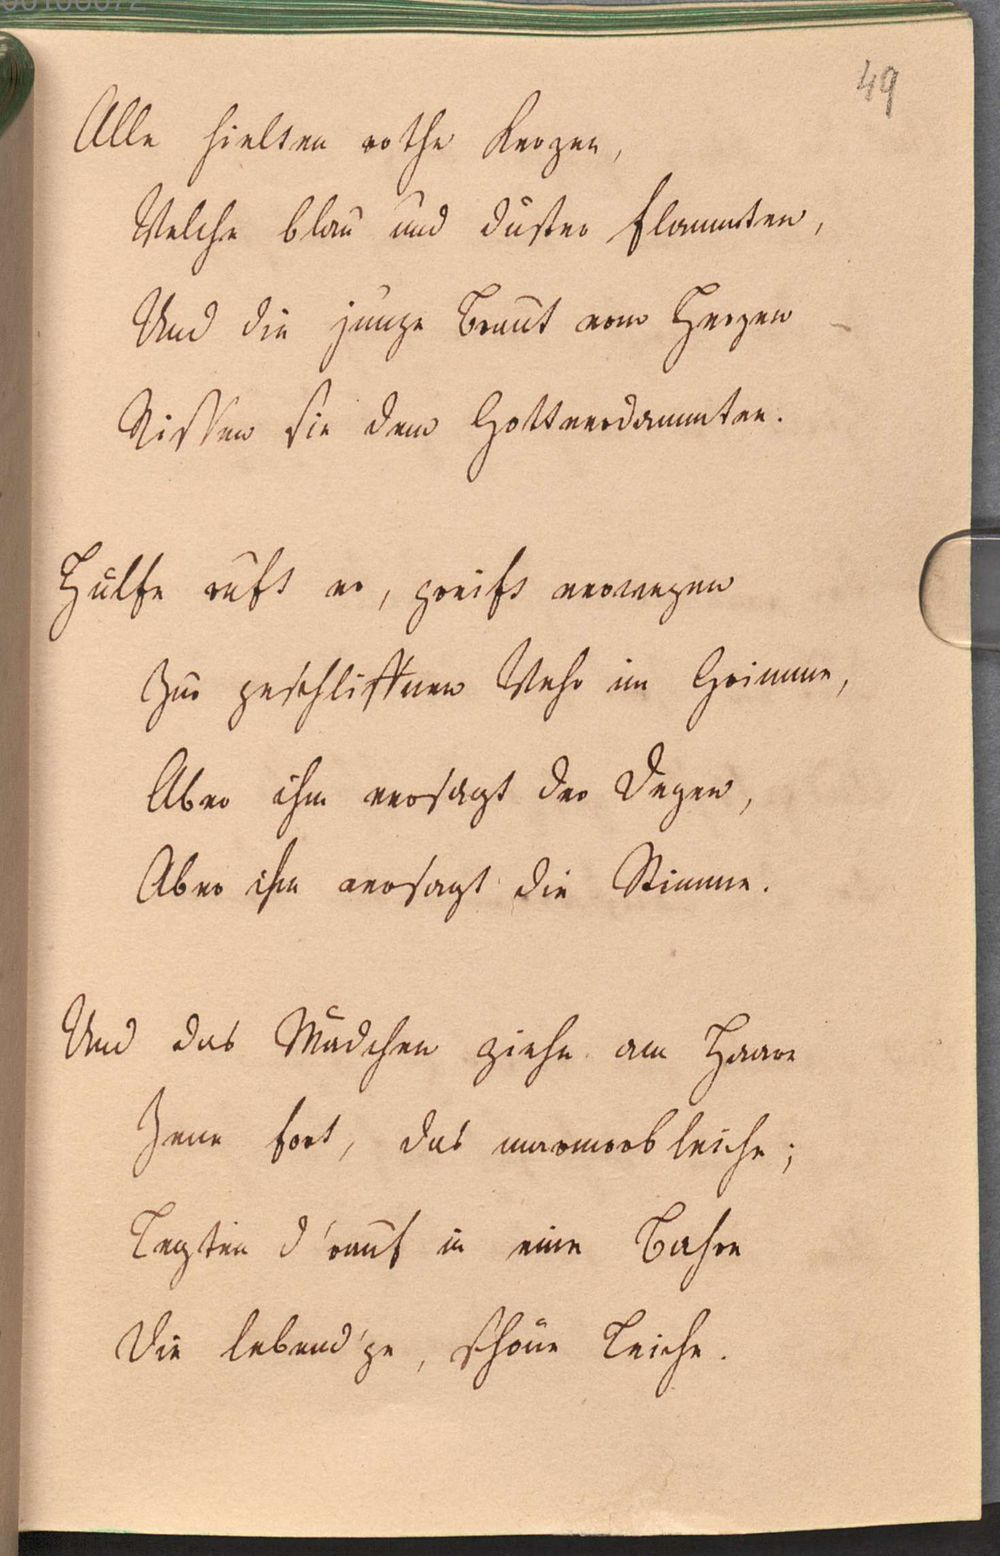 49
Alle hielten rothe Kerzen,
Welche blau und düster flammten,
Und die junge Braut vom Herzen
Rissen sie dem Gottverdammten.
Hülfe ruft er, greift verwegen
Zur geschliffnen Wehr im Grimme,
Aber ihm versagt der Degen,
Aber ihm versagt die Stimme.
Und das Mädchen ziehn am Haare
Jene fort, das marmorbleiche;
Legten d'rauf in eine Bahre
Die lebend'ge, schöne Leiche.